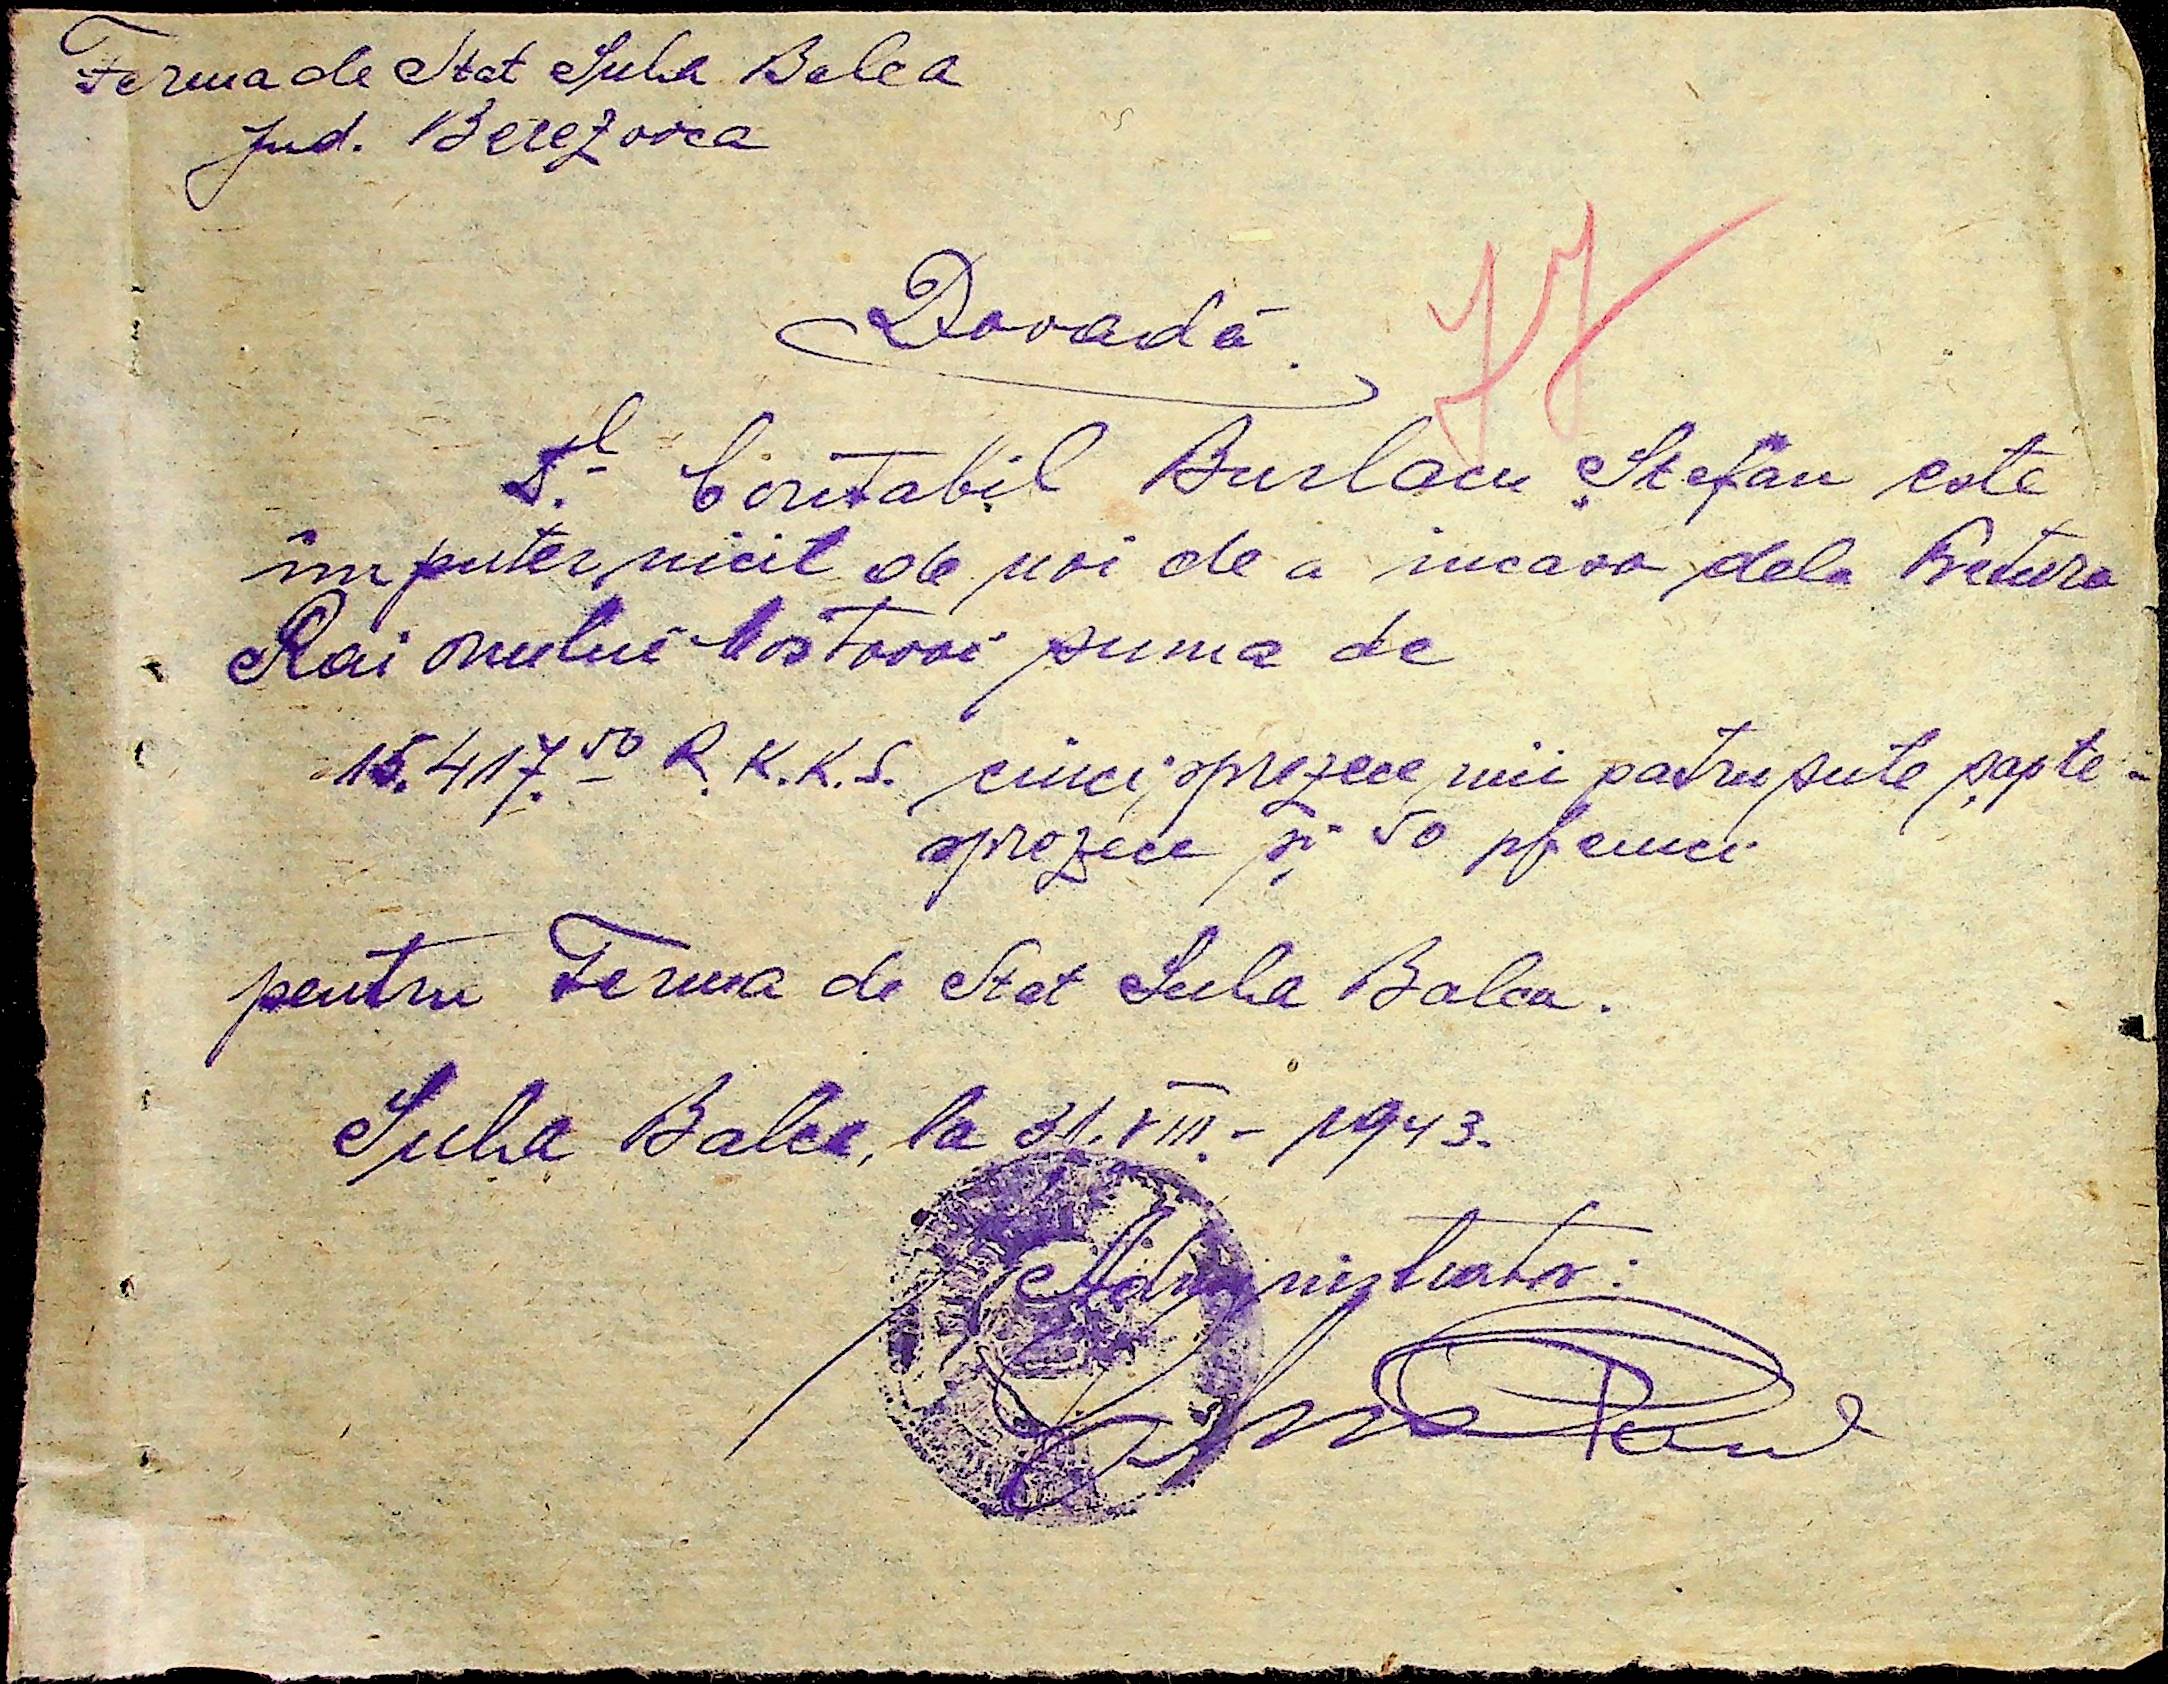 Ferma de Stat Suha Balca
Jud. Berezovca
77
Dovadă.
Dl. Contabil Burlacu Ștefan este
împuternicit de noi de a incasa dela Pretura
Raionului Mostovoi suma de
15.417.50 R.K.K.S. cincisprezece mii patrusute șapte-
sprezece și 50 pfenici
pentru Ferma de Stat Suha Balca.
Suha Balca, la 31.VIII.- 1943.
Administrator: